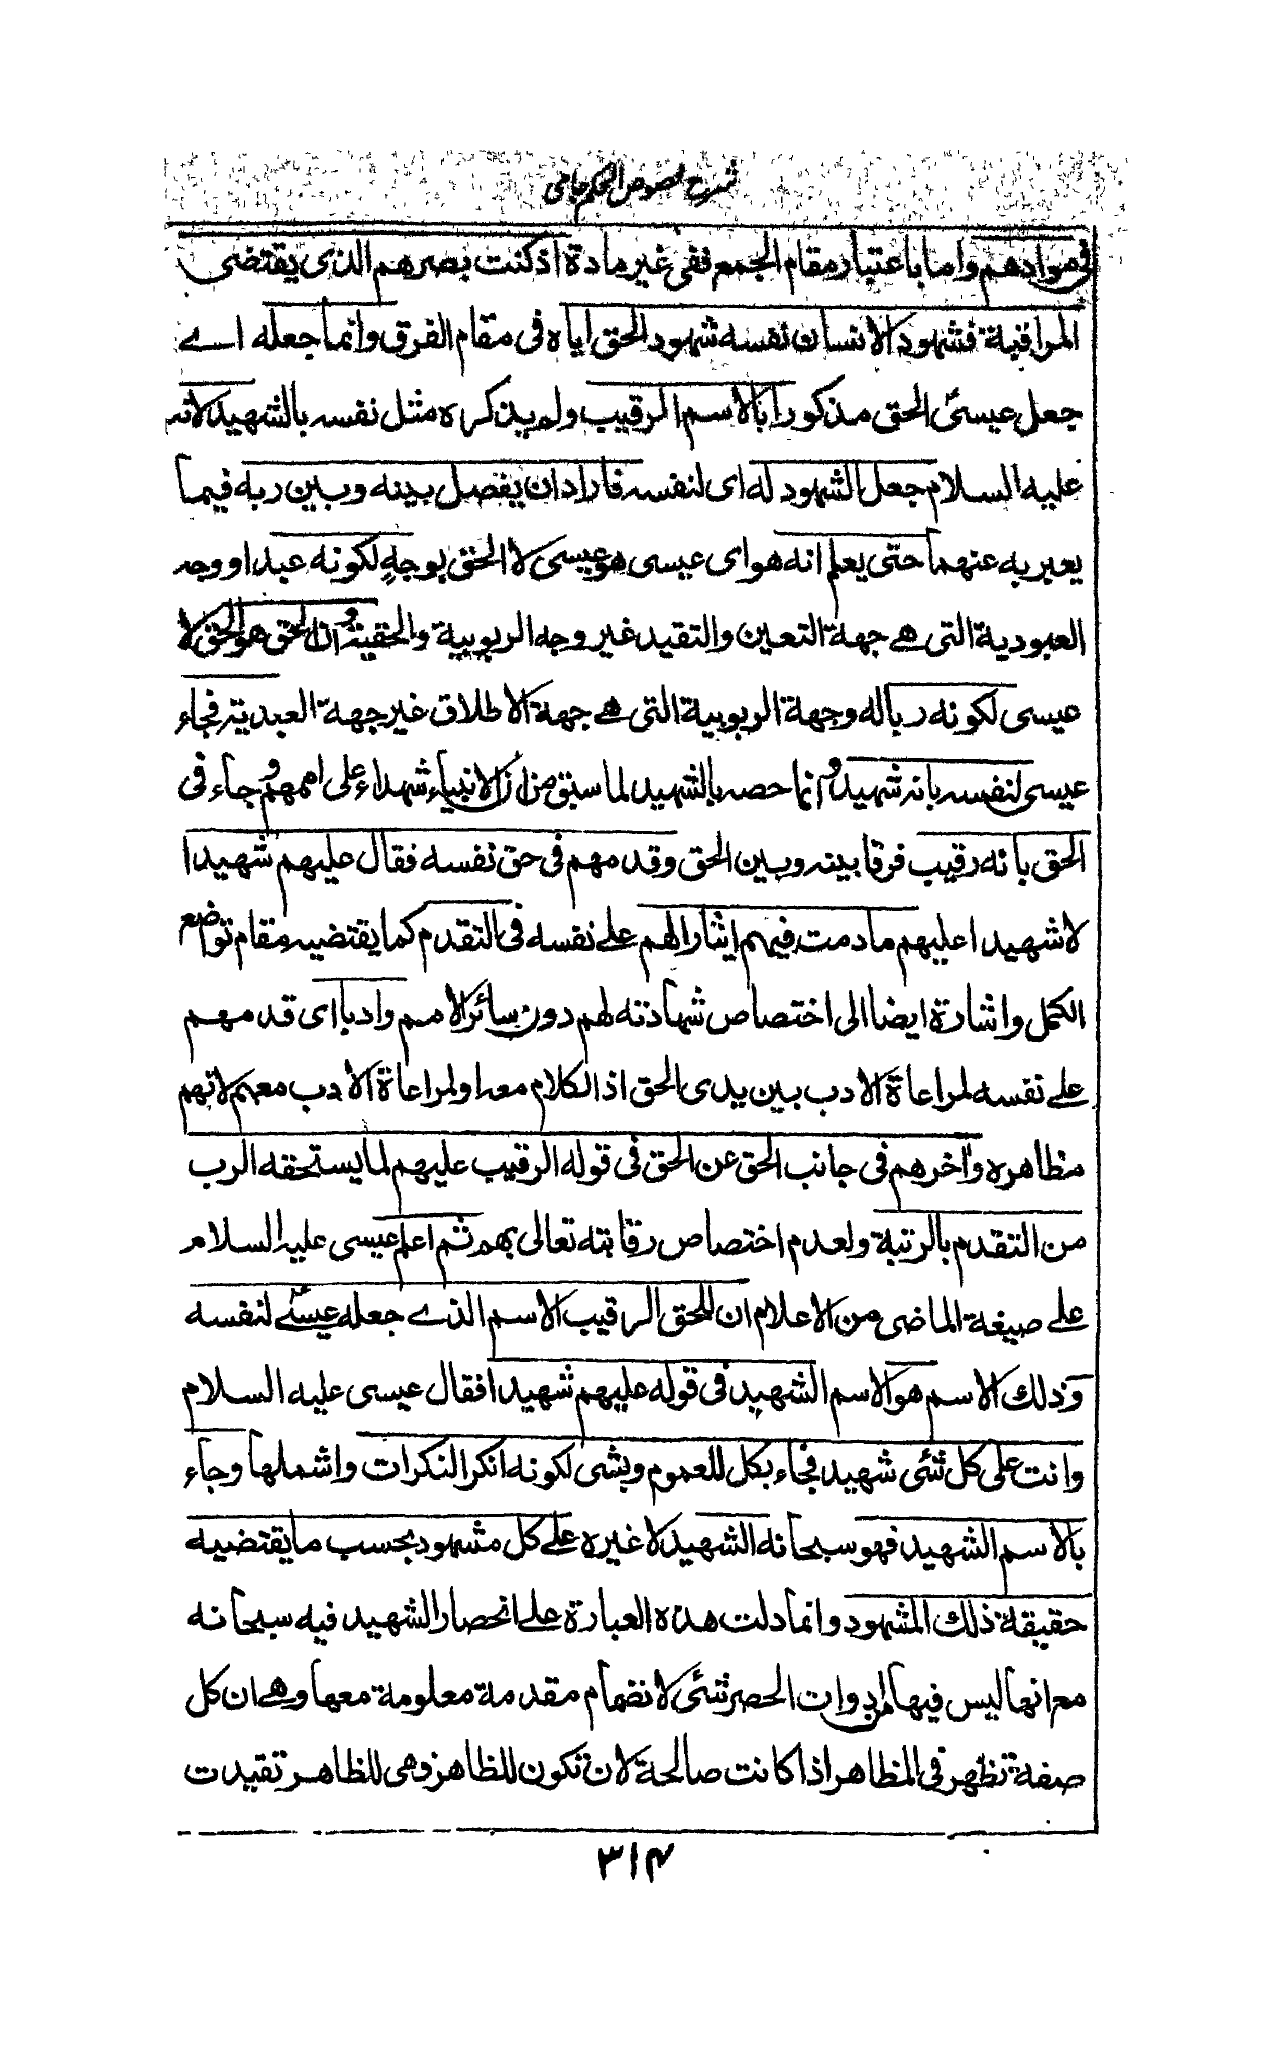 شرح فصوص الحكم جامى
فى موادهم واما باعتبار مقام الجمع ففى غير مادة اذ كنت بصرهم الذى يقتضى
المراقبة فشهود الانسان نفسه شهود الحق اياه فى مقام الفرق وانما جعله اے
جعل عيسىٰ الحق مذكورا بالاسم الرقيب ولم يذكره مثل نفسه بالشهيد لانه
عليه السلام جعل الشهود له اى لنفسه فاراد ان يفصل بينه وبين ربه فيما
يعبر به عنهما حتى يعلم انه هو اى عيسى هو عيسى لا الحق بوجه لكونه عبدا ووجه
العبودية التى هے جهة التعين والتقيد غير وجه الربوبية والحقية وان الحق هو الحق لا
عيسى لكونه ربا له وجهة الربوبية التى هے جهة الاطلاق غير جهة العبدية فجاء
عيسى لنفسه بانه شهيد وانما خصه بالشهيد لما سبق من ان الانبياء شهداء على اممهم وجاء فى
الحق بانه رقيب فرقا بينه وبين الحق وقدمهم فى حق نفسه فقال عليهم شهيدا
لا شهيدا عليهم ما دمت فيهم ايثارا لهم علے نفسه فى التقدم كما يقتضيه مقام تواضع
الكمل واشارة ايضا الى اختصاص شهادته لهم دون سائر الامم وادبا اى قدمهم
علے نفسه لمراعاة الادب بين يدى الحق اذ الكلام معه اولمراعاة الادب معهم لانهم
مظاهره وأخرهم فى جانب الحق عن الحق فى قوله الرقيب عليهم لما يستحقه الرب
من التقدم بالرتبة ولعدم اختصاص رقابته تعالى بهم ثم اعلم عيسى عليه السلام
علے صيغة الماضى من الاعلام ان للحق الرقيب الاسم الذے جعله عيسےٰ لنفسه
وذلك الاسم هو الاسم الشهيد فى قوله عليهم شهيدا فقال عيسى عليه السلام
وانت على كل شئى شهيد فجاء بكل للعموم وبشى لكونه انكر النكرات واشملها وجاء
بالاسم الشهيد فهو سبحانه الشهيد لا غيره علے كل مشهود بحسب ما يقتضيه
حقيقة ذلك المشهود وانما دلت هذه العبارة علے انحصار الشهيد فيه سبحانه
مع انها ليس فيها من ادوات الحصر شئى لانضمام مقدمة معلومة معها وهے ان كل
صفة تظهر فى المظاهر اذا كانت صالحة لان تكون للظاهر فهى للظاهر تقيدت
٣١٤